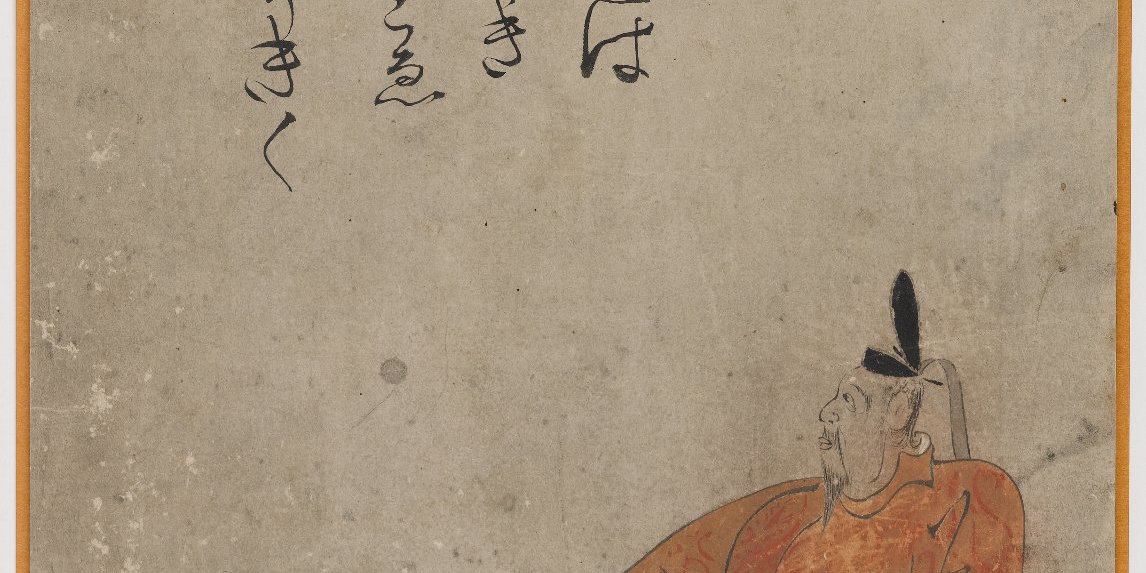 は
き
ゑ
きく